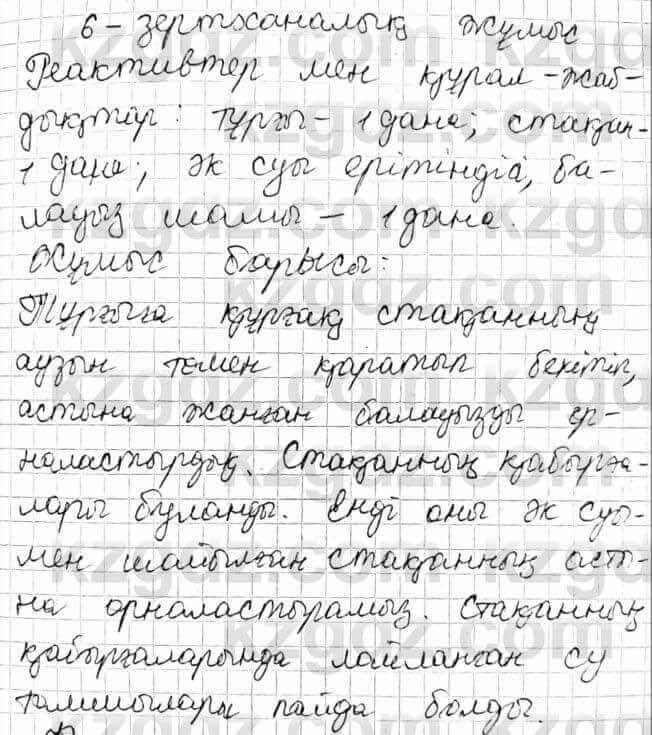 6 - зертханалық жұмыс
Реактивтер мен құрал - жаб-
дықтар: тұрғы - 1 дана; стақан -
1 дана; әк суы ерітіндіі, ба-
лауыз шамы - 1 дана.
Жұмыс барысы:
Тұрғыға құрғақ стақанның
аузын төмен қаратып бекітіп,
астына жанған балауызды ор-
наластырдық. Стақанның қабырға-
лары буланды. Енді оны әк суы-
мен шайылған стақанның асты-
на орналастырамыз. Стақанның
қабырғаларында лайланған су
тамшылары пайда болды.